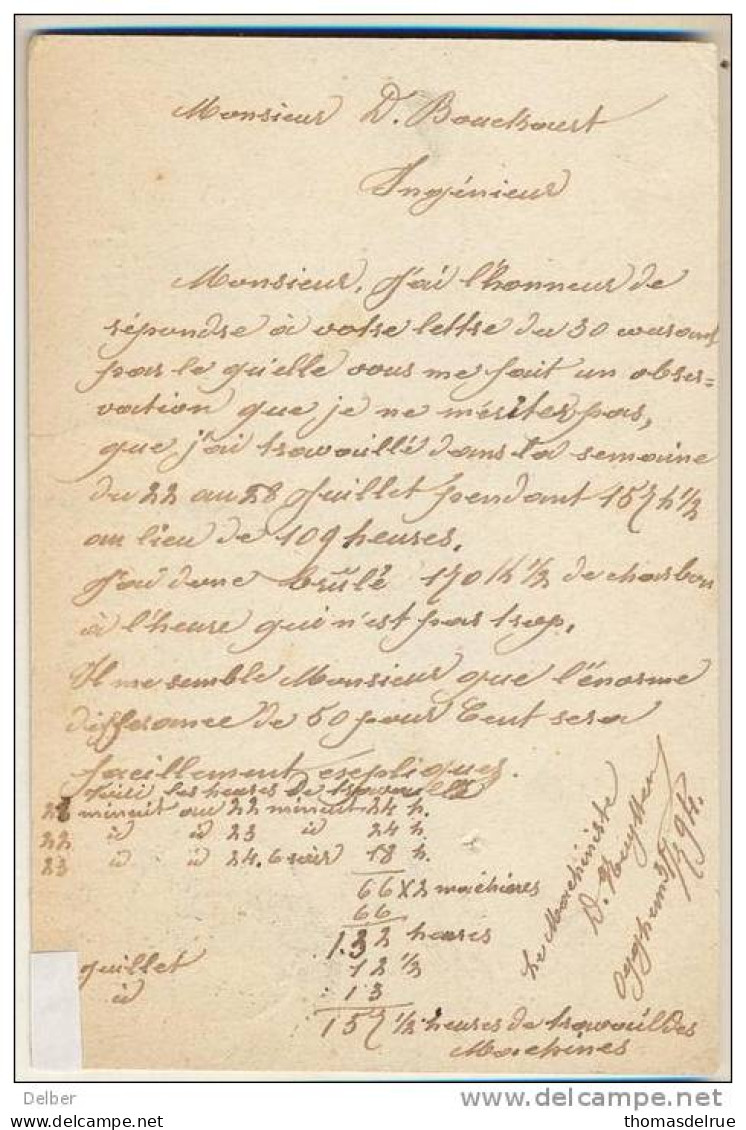 Monsieur D. Bouckaert
Ingénieur
Monsieur, J'ai l'honneur de
répondre à votre lettre du 30 courant
par le qu'elle vous me fait un obser=
vation que je ne mérites pas,
que j'ai travaillé dans la semaine
du 22 au 28 Juillet pendant 157 h ½
au lieu de 109 heures.
J'ai donc brûlé 170 K ½ de charbon
à l'heure qui n'est pas trop.
Il me semble Monsieur que l'énorme
differance de 50 pour Cent sera
facillement expliquez.
Voici les heures de travaille
minuit au 22 minuit 24 h.
22 à à 23 à 24 h.
23 à à 24. 6 soir 18 h.
66 x 2 machières
66
132 heures
guillet 12 ½
à 13
157 ½ heures de travail des
Machines
Le Machiniste
D.
Oyghem 31/7 94.
Delber
delcampe.net
thomasdelrue